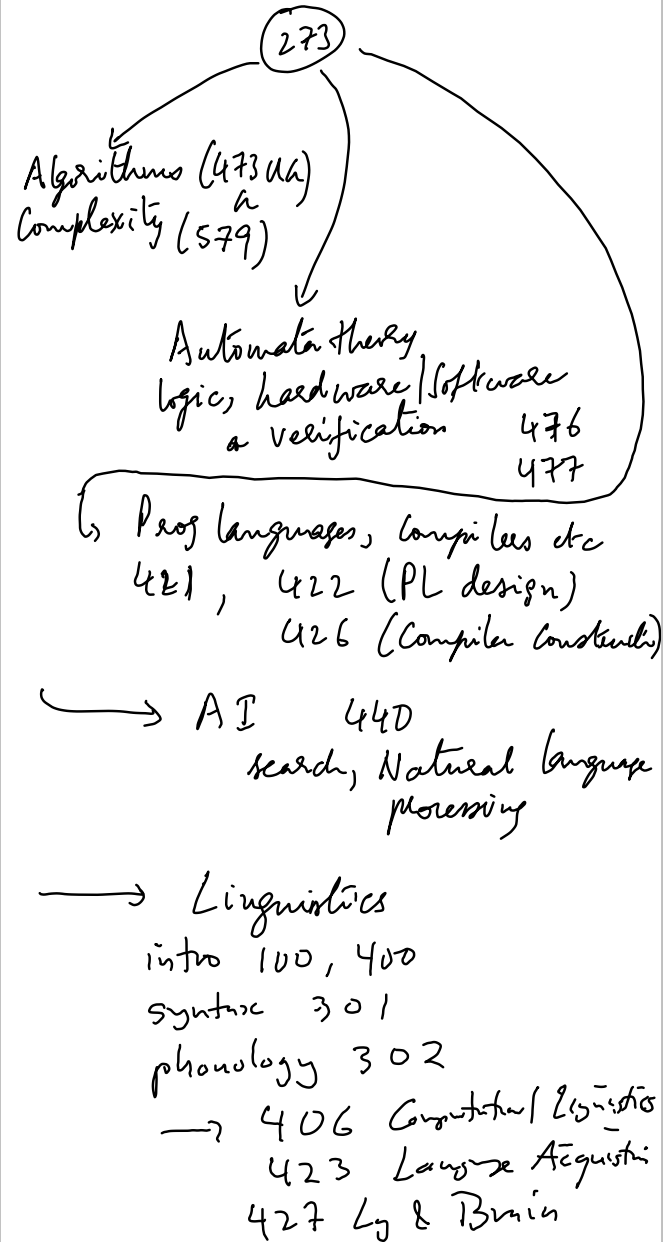 273
Algorithms (473 UG)
&
Complexity (579)
Automata theory
logic, hardware/software
& verification 476
477
Prog languages, compilers etc
421, 422 (PL design)
426 (Compiler Constructi)
AI 440
search, Natural language
processing
Linguistics
intro 100, 400
syntax 301
phonology 302
406 Computational Linguistics
423 Language Acquisition
427 Lg & Brain